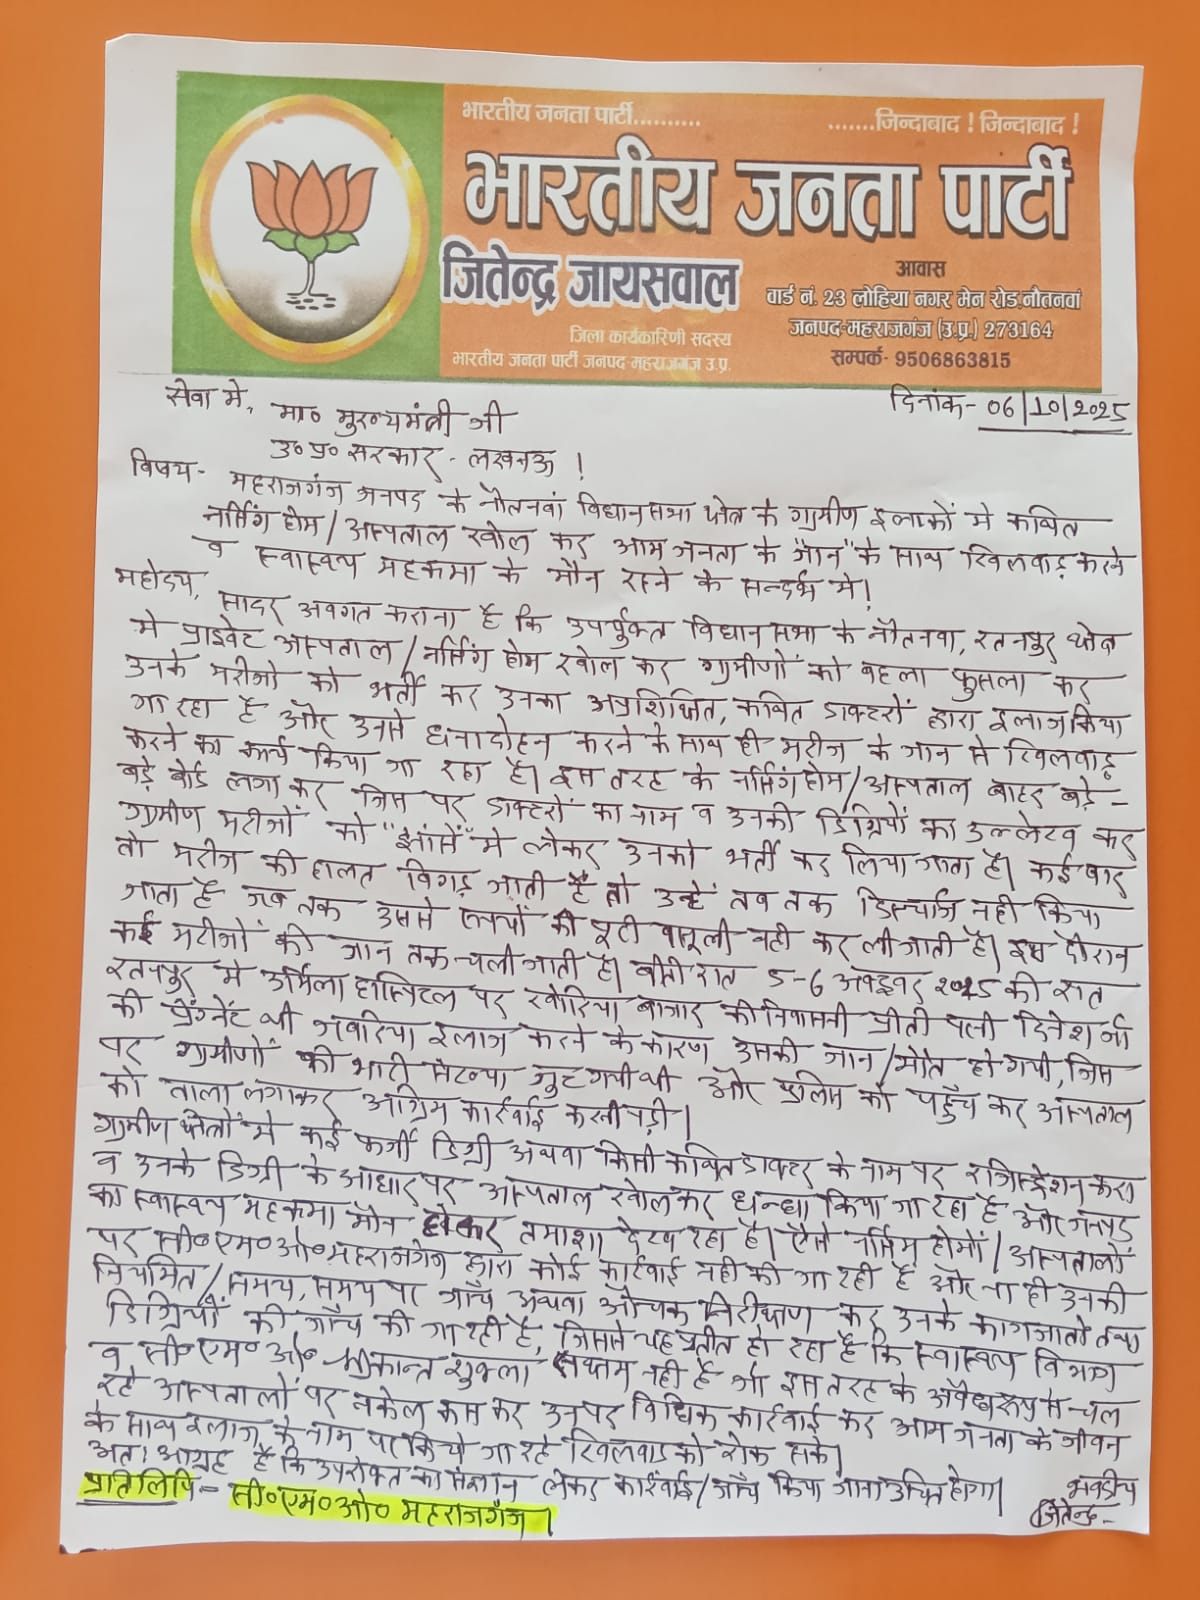 भारतीय जनता पार्टी..........
.......जिन्दाबाद ! जिन्दाबाद !
भारतीय जनता पार्टी
जितेन्द्र जायसवाल
जिला कार्यकारिणी सदस्य
भारतीय जनता पार्टी जनपद-महराजगंज उ.प्र.
आवास
वार्ड नं. 23 लोहिया नगर मेन रोड़ नौतनवां
जनपद-महराजगंज (उ.प्र.) 273164
सम्पर्क- 9506863815
दिनांक- 06/10/2025
सेवा मे, मा० मुख्यमंत्री जी
उ० प्र० सरकार - लखनऊ !
विषय- महराजगंज जनपद के नौतनवां विधानसभा क्षेत्र के ग्रामीण इलाकों मे कथित
नर्सिंग होम/अस्पताल खोल कर आम जनता के "जान" के साथ खिलवाड़ करने
व स्वास्थ्य महकमा के मौन रहने के सन्दर्भ मे!
महोदय, सादर अवगत कराना है कि उपर्युक्त विधानसभा के नौतनवा, रतनपुर क्षेत्र
मे प्राइवेट अस्पताल/नर्सिंग होम खोल कर ग्रामीणों को बहला फुसला कर
उनके मरीजो को भर्ती कर उनका अप्रशिक्षित, कथित डाक्टरों द्वारा इलाज किया
जा रहा है और उनसे धनादोहन करने के साथ ही मरीज के जान से खिलवाड़
करने का कार्य किया जा रहा है। इस तरह के नर्सिंग होम/अस्पताल बाहर बड़े-
बड़े बोर्ड लगा कर जिस पर डाक्टरों का नाम व उनकी डिग्रियों का उल्लेख कर
ग्रामीण मरीजों को "झांसे" मे लेकर उनको भर्ती कर लिया जाता है। कई बार
तो मरीज की हालत बिगड़ जाती है तो उन्हें तब तक डिस्चार्ज नही किया
जाता है जब तक उससे रूपयों की पूरी वसूली नही कर ली जाती है। इस दौरान
कई मरीजों की जान तक चली जाती है। बीती रात 5-6 अक्टूबर 2025 की रात
रतनपुर मे उर्मिला हास्पिटल पर खोरिया बाजार की निवासनी प्रीती पत्नी दिनेश जो
की प्रेग्नेंट थी जबरिया इलाज करने के कारण उसकी जान/मौत हो गयी, जिस
पर ग्रामीणों की भारी संख्या जुट गयी थी और पुलिस को पहुँच कर अस्पताल
को ताला लगाकर अग्रिम कार्रवाई करनी पड़ी।
ग्रामीण क्षेत्रों मे कई फर्जी डिग्री अथवा किसी कथित डाक्टर के नाम पर रजिस्ट्रेशन करा
व उनके डिग्री के आधार पर अस्पताल खोलकर धन्धा किया जा रहा है और जनपद
का स्वास्थ्य महकमा मौन होकर तमाशा देख रहा है। ऐसे नर्सिंग होमों/अस्पतालों
पर सी०एम०ओ० महराजगंज द्वारा कोई कार्रवाई नही की जा रही है और ना ही उनकी
नियमित/समय, समय पर जाँच अथवा औचक निरीक्षण कर उनके कागजातो तथा
डिग्रियों की जाँच की जा रही है, जिससे यह प्रतीत हो रहा है कि स्वास्थ्य विभाग
व सी०एम०ओ० श्रीकान्त शुक्ला सक्षम नही है जो इस तरह के अवैध रूप से चल
रहे अस्पतालों पर नकेल कस कर उनपर विधिक कार्रवाई कर आम जनता के जीवन
के साथ इलाज के नाम पर किये जा रहे खिलवाड़ को रोक सके।
अतः आग्रह है कि उपरोक्त का संज्ञान लेकर कार्रवाई/जाँच किया जाना उचित होगा।
भवदीय
जितेन्द्र
प्रतिलिपि - सी०एम०ओ० महराजगंज।